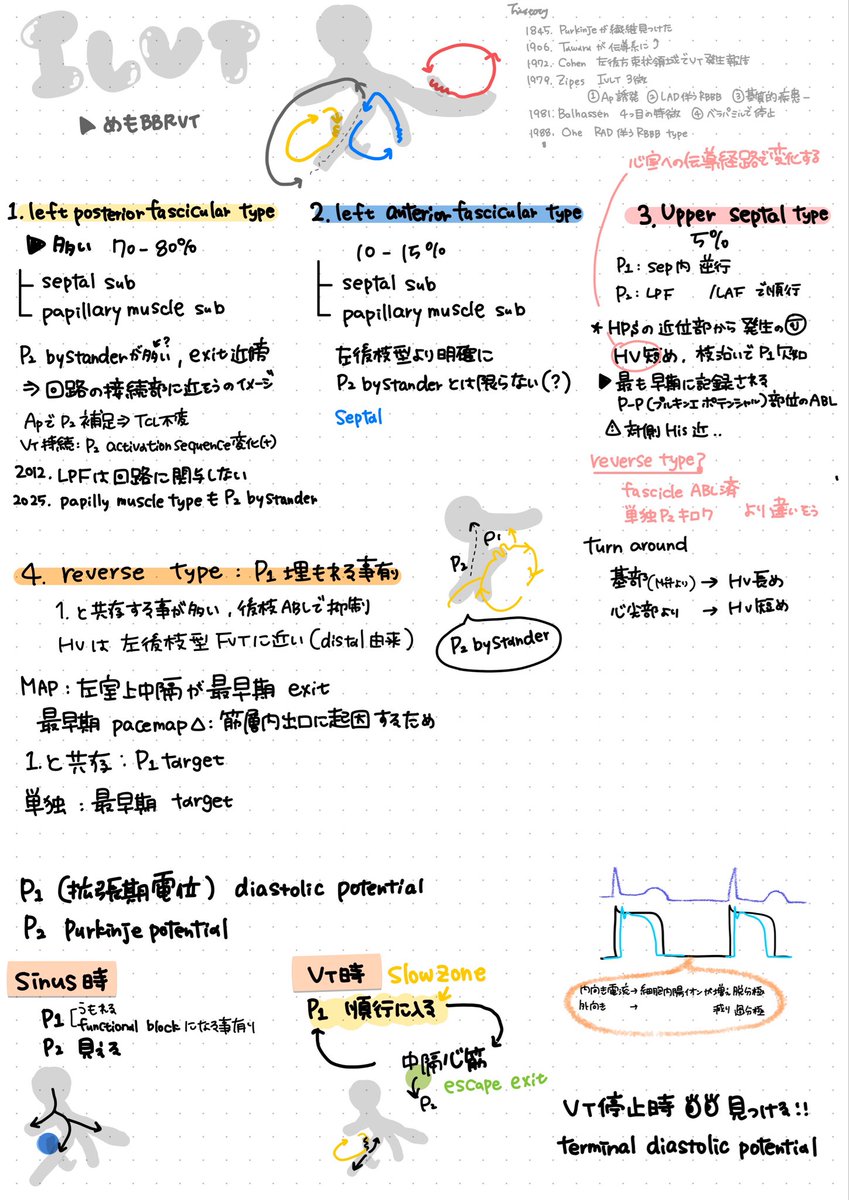 ILVT
▶めもBBRVT
History
1845. Purkinjeが繊維見つけた
1906. Tawaraが伝導系に
1972. Cohen 左後方束状領域でVT発生報告
1979. Zipes ILVT 3徴
①Ap誘発 ②LAD伴うRBBB ③基質的疾患−
1981. Belhassen 4つ目の特徴 ④ベラパミルで停止
1988. Ohe RAD伴うRBBB type
心室への伝導経路で変化する
1. left posterior fascicular type
▶多い 70-80%
septal sub
papillary muscle sub
P2 bystanderが多い, exit近傍
⇒回路の接続部に近そうのイメージ
ApでP2補足⇒TCL不変
VT持続：P2 activation sequence変化(+)
2012. LPFは回路に関与しない
2025. papilly muscle typeもP2 bystander
2. left anterior fascicular type
10-15%
septal sub
papillary muscle sub
左後枝型より明確に
P2 bystanderとは限らない(?)
Septal
3. Upper septal type
5%
P1：sep内 逆行
P2：LPF /LAFで順行
*HPSの近位部から発生の可
HV短め, 枝沿いでP2欠如
▶最も早期に記録される
P-P(プルキンエポテンシャル)部位のABL
⚠対側His近..
reverse type?
fascicle ABL済
単独P2キロク より違いそう
Turn around
基部 → HV長め
心尖部より → HV短め
4. reverse type：P1埋もれる事有り
1.と共存する事が多い, 後枝ABLで抑制
HVは左後枝型FVTに近い(distal由来)
P2
P1
P2 bystander
MAP：左室上中隔が最早期 exit
最早期 pacemap△：筋層内出口に起因するため
1.と共存：P1 target
単独：最早期 target
P1 (拡張期電位) diastolic potential
P2 Purkinje potential
Sinus時
P1 うもれる
functional blockになる事有り
P2 見える
VT時
Slow zone
P1 順行に入る
中隔心筋
escape exit
P2
内向き電流→細胞内陽イオンが増え脱分極
外向き → 減り過分極
VT停止時 見つける!!
terminal diastolic potential